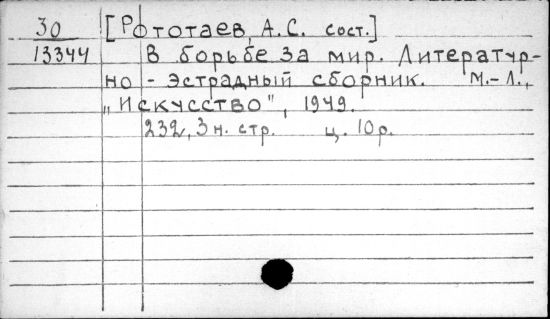 30 [Рототаев, А.С. сост.]
13344 В борьбе за мир. Литератур-
но - эстрадный сборник. М.-Л.,
"Искусство", 1949.
232, 3 н. стр. ц. 10 р.